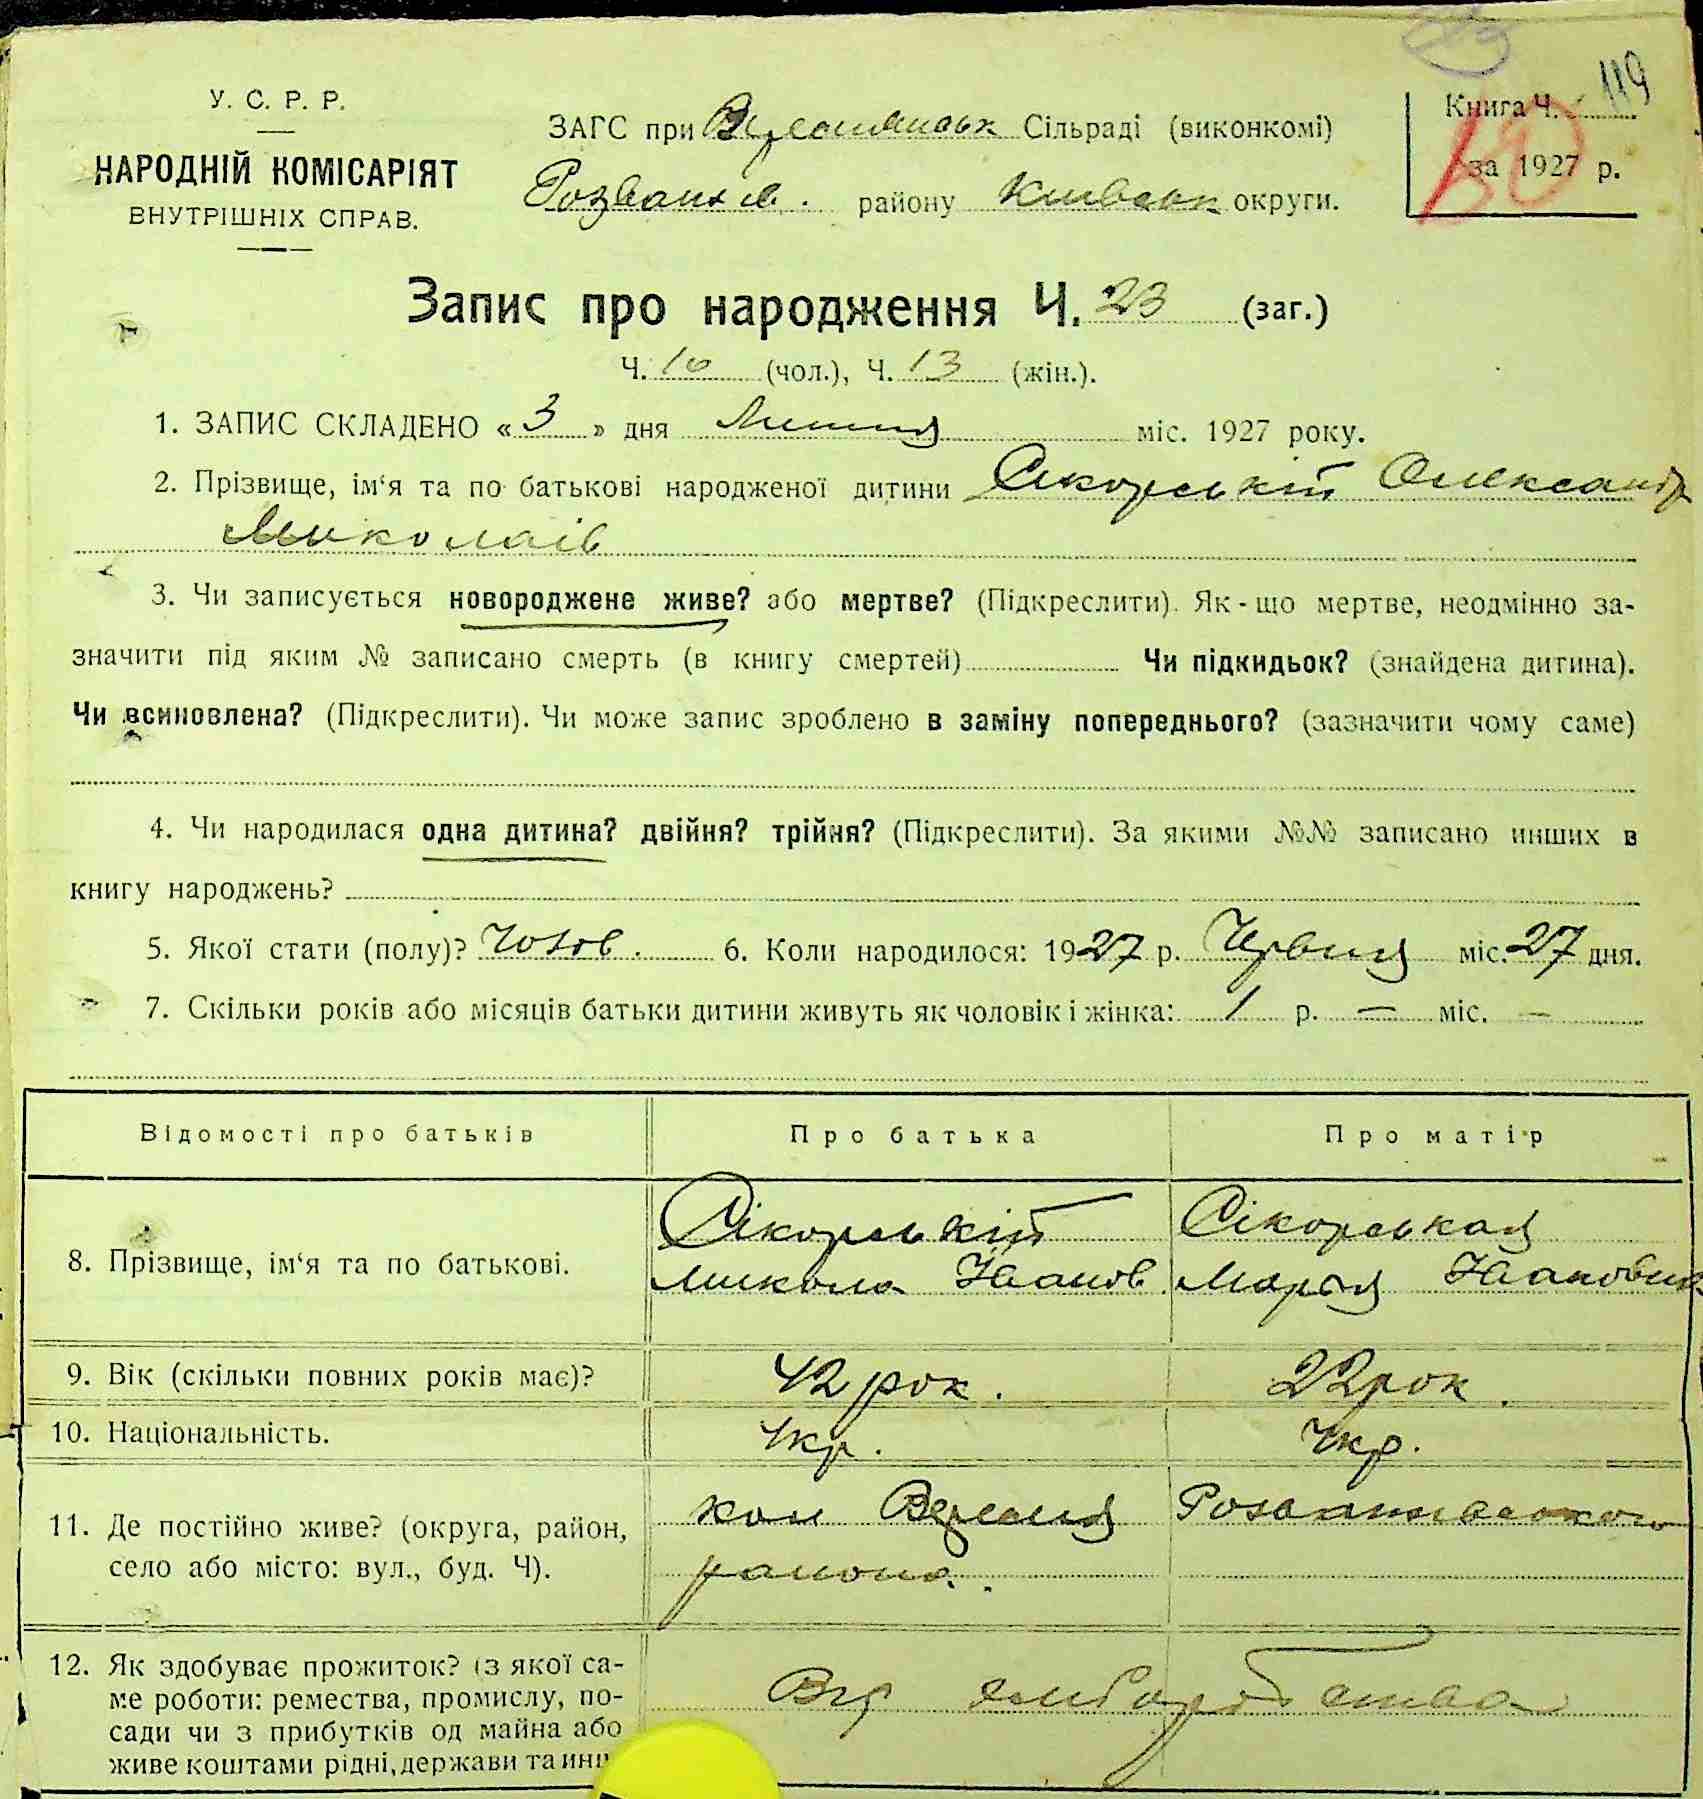 119
У. С. Р. Р.
НАРОДНІЙ КОМІСАРІЯТ
ВНУТРІШНІХ СПРАВ.
ЗАГС при Сільраді (виконкомі)
Розваж. району Київськ округи.
Книга Ч.
за 1927 р.
Запис про народження Ч. 23 (заг.)
Ч. 10 (чол.), Ч. 13 (жін.).
1. ЗАПИС СКЛАДЕНО «3» дня Липня міс. 1927 року.
2. Прізвище, ім‘я та по батькові народженої дитини Сікорський Олександр
Миколаів
3. Чи записується новороджене живе? або мертве? (Підкреслити). Як-що мертве, неодмінно за-
значити під яким № записано смерть (в книгу смертей) Чи підкидьок? (знайдена дитина).
Чи всиновлена? (Підкреслити). Чи може запис зроблено в заміну попереднього? (зазначити чому саме)
4. Чи народилася одна дитина? двійня? трійня? (Підкреслити). За якими №№ записано инших в
книгу народжень?
5. Якої стати (полу)? Чолов. 6. Коли народилося: 1927 р. Червня міс. 27 дня.
7. Скільки років або місяців батьки дитини живуть як чоловік і жінка: 1 р. — міс. —
Відомості про батьків Про батька Про матір
8. Прізвище, ім‘я та по батькові.
Сікорський
Микола Іванов
Сікорськая
Марья Івановна
9. Вік (скільки повних років має)? 42 рок. 22 рок.
10. Національність. Укр. Укр.
11. Де постійно живе? (округа, район,
село або місто: вул., буд. Ч).
кол Вересня Розважівського
района.
12. Як здобуває прожиток? (з якої са-
ме роботи: ремества, промислу, по-
сади чи з прибутків од майна або
живе коштами рідні, держави та инш
Від хліборобства